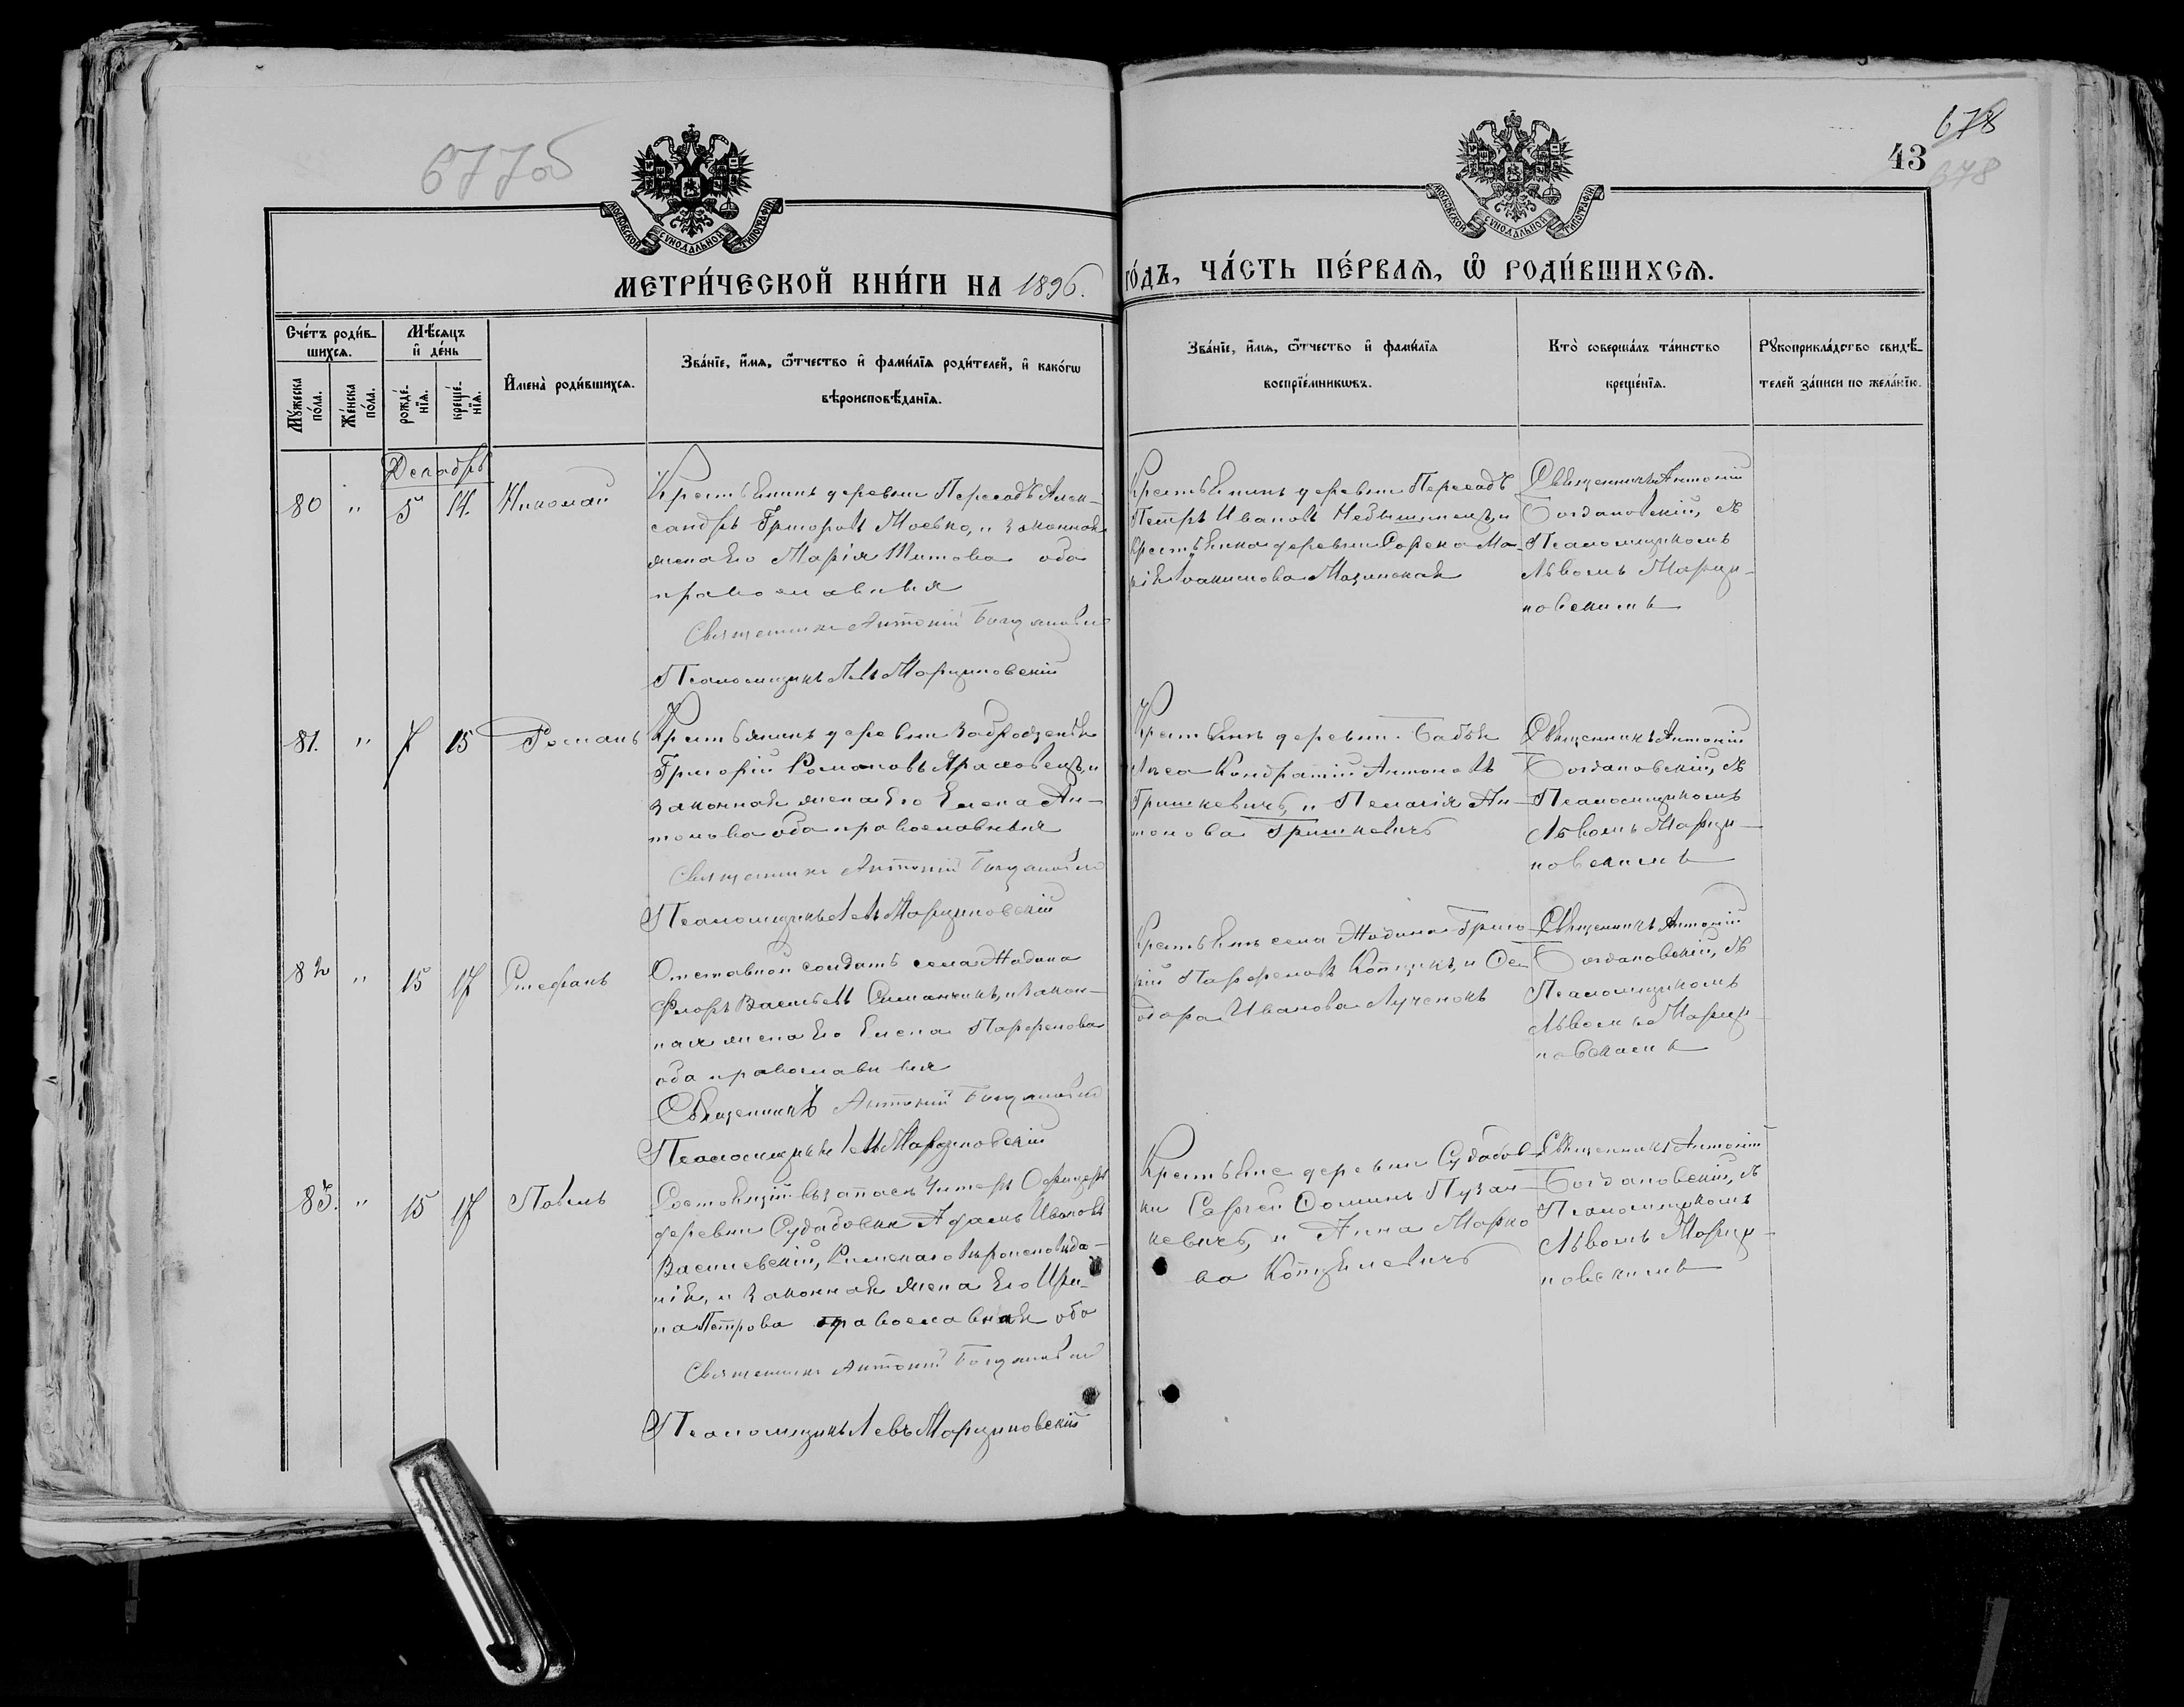 677об
678
43
678
МОСКОВСКОЙ СУНОДАЛЬНОЙ ТИПОГРАФІИ
МОСКОВСКОЙ СУНОДАЛЬНОЙ ТИПОГРАФІИ
МЕТРИ́ЧЕСКОЙ КНИ́ГИ НА 1896. ГО́ДЪ, ЧА́СТЬ ПЕ́РВАѦ, Ѡ҆ РОДИ́ВШИХСѦ.
Сче́тъ роди́в-
шихсѧ.
Мꙋ́жеска по́ла.
Же́нска по́ла.
Мѣ́сѧцъ
и҆ де́нь
рожде́-
нїѧ.
креще́-
нїѧ.
И҆мена̀ роди́вшихсѧ.
Зва́нїе, и҆́мѧ, ѻ҆́тчество и҆ фами́лїѧ роди́телей, и҆ како́гѡ
вѣроисповѣ́данїѧ.
Зва́нїе, и҆́мѧ, ѻ҆́тчество и҆ фами́лїѧ
воспрїе́мникѡвъ.
Кто̀ соверша́лъ та́инство
креще́нїѧ.
Рꙋкоприкла́дство свидѣ́-
телей за́писи по жела́нїю.
Декабрь
80 " 5 14. Николай
Крестьянинъ деревни Пересадъ Алек-
сандръ Григоровъ Моська, и законная
жена его Марія Титова оба
православныя
Священникъ Антоній Богдановскій
Псаломщикъ Левъ Марциновскій
Крестьянинъ деревни Пересадъ
Петръ Ивановъ и
крестьянка деревни Ма-
рія Іоакимова
Священникъ Антоній
Богдановскій, съ
Псаломщикомъ
Львомъ Марци-
новскимъ
81. " 7 15 Романъ
Крестьянинъ деревни
Григорій Романовъ и
законная жена его Елена Ан-
тонова оба православныя
Священникъ Антоній Богдановскій
Псаломщикъ Левъ Марциновскій
Крестьянъ деревни Бабъя
Лѣса Кондратій Антоновъ
Гришкевичъ, и Пелагія Ан-
тонова Гришкевичъ
Священникъ Антоній
Богдановскій, съ
Псаломщикомъ
Львомъ Марци-
новскимъ
82 " 15 17 Стефанъ
Отставной солдатъ села Жодина
Флоръ Васильевъ и закон-
ная жена его Елена Парфенова
оба православныя
Священникъ Антоній Богдановскій
Псаломщикъ Левъ Марциновскій
Крестьянъ села Жодина Григо-
рій Парфеновъ и Ѳео-
дора Иванова Лученокъ
Священникъ Антоній
Богдановскій, съ
Псаломщикомъ
Львомъ Марци-
новскимъ
83. " 15 17 Павелъ
Состоящій въ запасѣ Унтеръ Офицеръ
деревни Судобовки Адамъ Ивановъ
Василевскій, Римскаго вѣроисповѣда-
нія, и законная жена его Ири-
на Петрова православная оба
Священникъ Антоній Богдановскій
Псаломщикъ Левъ Марциновскій
Крестьяне деревни Судобов-
ки Сергей Ѳоминъ Пузан-
кевичъ, и Анна Марко-
ва
Священникъ Антоній
Богдановскій, съ
Псаломщикомъ
Львомъ Марци-
новскимъ